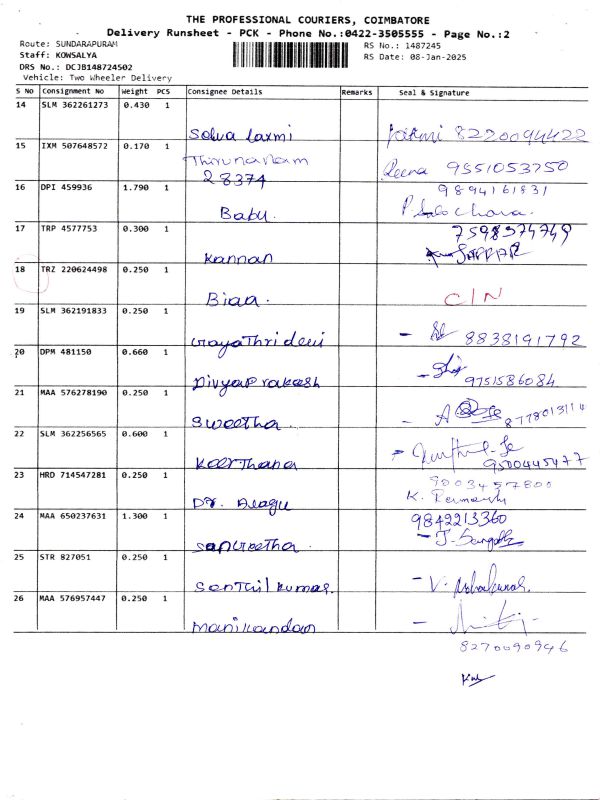 THE PROFESSIONAL COURIERS, COIMBATORE
Delivery Runsheet - PCK - Phone No.:0422-3505555 - Page No.:2
Route: SUNDARAPURAM
RS No.: 1487245
Staff: KOWSALYA
RS Date: 08-Jan-2025
DRS No.: DCJB148724502
Vehicle: Two Wheeler Delivery
S NO Consignment No Weight PCS Consignee Details Remarks Seal & Signature
14 SLM 362261273 0.430 1
Selva Laxmi 8220094422
15 IXM 507648572 0.170 1
Thirunavam
28374
Reena 9551053750
16 DPI 459936 1.790 1
9894161831
Babu.
17 TRP 4577753 0.300 1
7598374749
Kannan
18 TRZ 220624498 0.250 1
Biaa. C/N
19 SLM 362191833 0.250 1
Gayathri devi 8838191792
20 DPM 481150 0.660 1
Divyaprakash 9751586084
21 MAA 576278190 0.250 1
Swetha. 8778013114
22 SLM 362256565 0.600 1
Keerthana 9500445477
23 HRD 714547281 0.250 1
9003457800
Dr. Alagu
24 MAA 650237631 1.300 1
9842213360
Sangeetha.
25 STR 827051 0.250 1
Senthilkumar.
26 MAA 576957447 0.250 1
Manikandan
8270090946